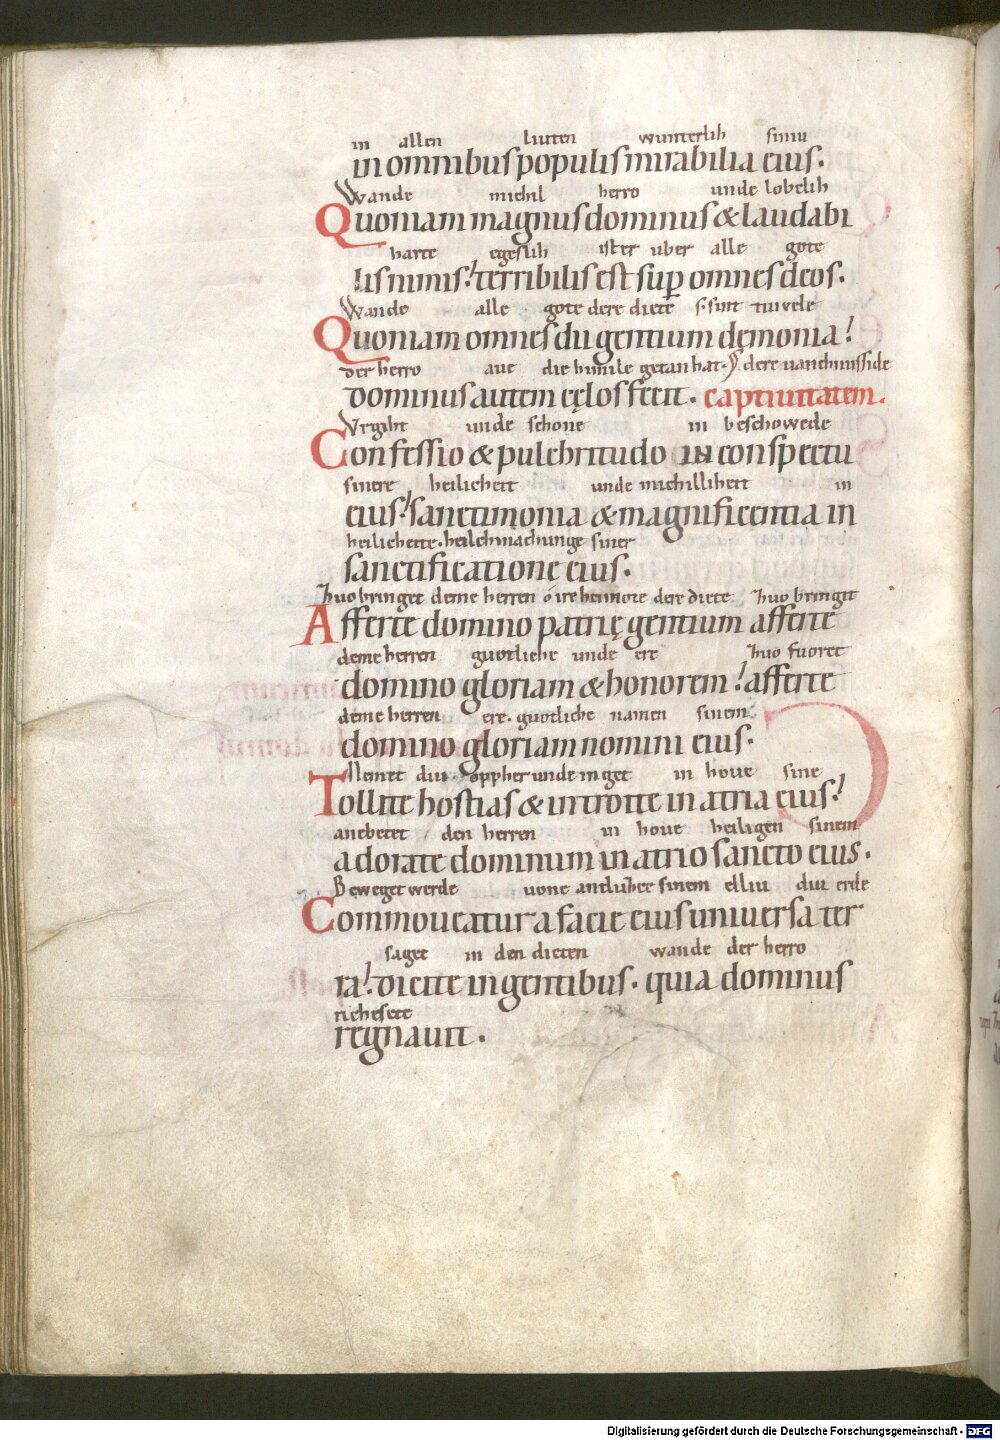 in allen liuten wunterlih siniu
in omnibus populis mirabilia eius.
Wande michil herro unde lobelih
Quoniam magnus dominus & laudabi
harte egeslih ister uber alle gote
lis nimis: terribilis est sup omnes deos.
Wande alle gote dere diete s. sint tiuvele
Quoniam omnes dii gentium dęmonia:
der herro aue die himile getan hat. dere uanchnisside
dominus autem cęlos fecit. captiuitatem.
Urgiht unde schone in beschowede
Confessio & pulchritudo in conspectu
sinere heilicheit unde michilliheit in
eius: sanctimonia & magnificentia in
heilicheite. heilchmachunge siner
sanctificationę eius.
Zuo bringet deme herren o ir heimote dere diete zuo bringit
Afferte domino patrię gentium afferte
deme herren guotliche unde ere zuo fuoret
domino gloriam & honorem: afferte
deme herren ere. guotliche namen sinem
domino gloriam nomini eius.
Nemet diu oppher unde in get in houe sine
Tollite hostias & introite in atria eius:
anebetet den herren in houe heiligen sinem
adorate dominum in atrio sancto eius.
Beweget werde uone antluzer sinem elliu diu erde
Commoueatur a facie eius uniuersa ter
saget in den dieten wande der herro
ra: dicite in gentibus. quia dominus
richesete
regnauit.
Digitalisierung gefördert durch die Deutsche Forschungsgemeinschaft - DFG